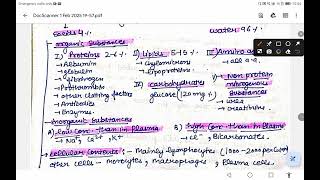 Emergency calls only
15:44
DocScanner 1 Feb 2023 19-57.pdf
solids 4%
water 96%
organic substances
I) Proteins 2-6%
→ Albumin
→ globulin
→ fibrinogen
→ Prothrombin
→ other clotting factors
→ Antibodies
→ Enzymes
II) Lipids 5-15%
→ Chylomicrons
→ lipoproteins
III) carbohydrates
glucose (120mg%)
IV) Amino acids
→ all a.a.
V) Non protein
nitrogenous
Substances
→ urea
→ creatinine
inorganic Substances
A) low conc. than in plasma
→ Na⁺, Ca²⁺, K⁺
B) high conc. than in plasma
→ cl⁻, Bicarbonates.
Cellular contents: - Mainly lymphocytes (1000-2000 per
other cells - monocytes, macrophages, plasma cells.